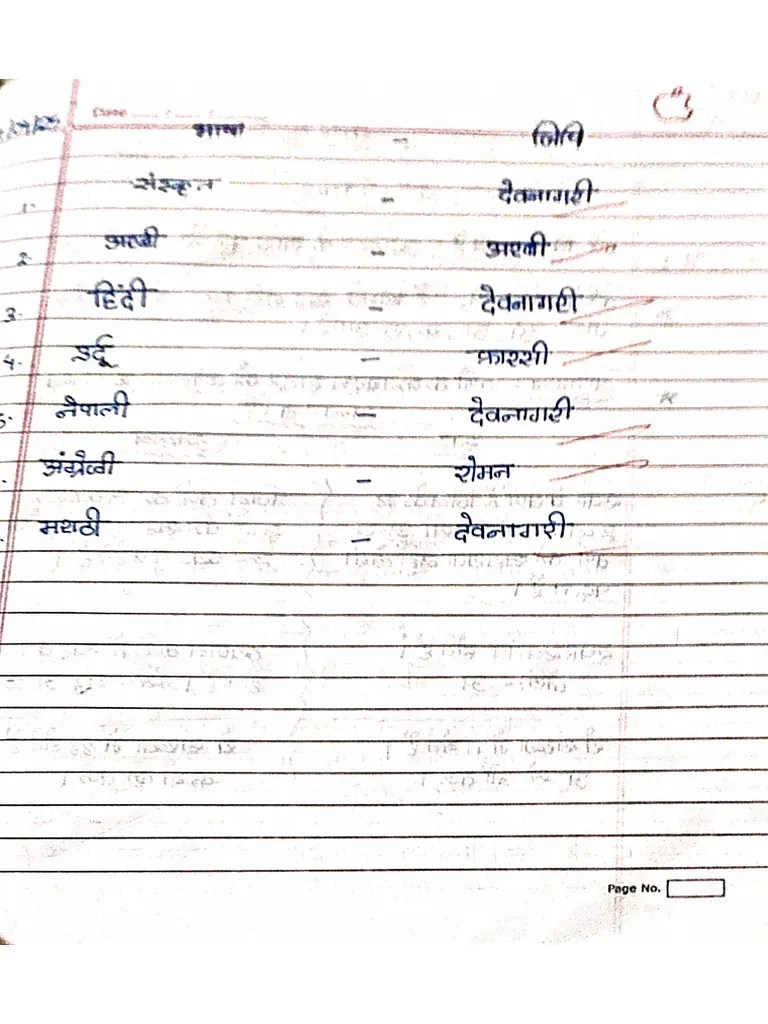 भाषा - लिपि
1. संस्कृत - देवनागरी
2. अरबी - अरबी
3. हिंदी - देवनागरी
4. उर्दू - फ़ारसी
5. नेपाली - देवनागरी
अंग्रेज़ी - रोमन
मराठी - देवनागरी
Page No.